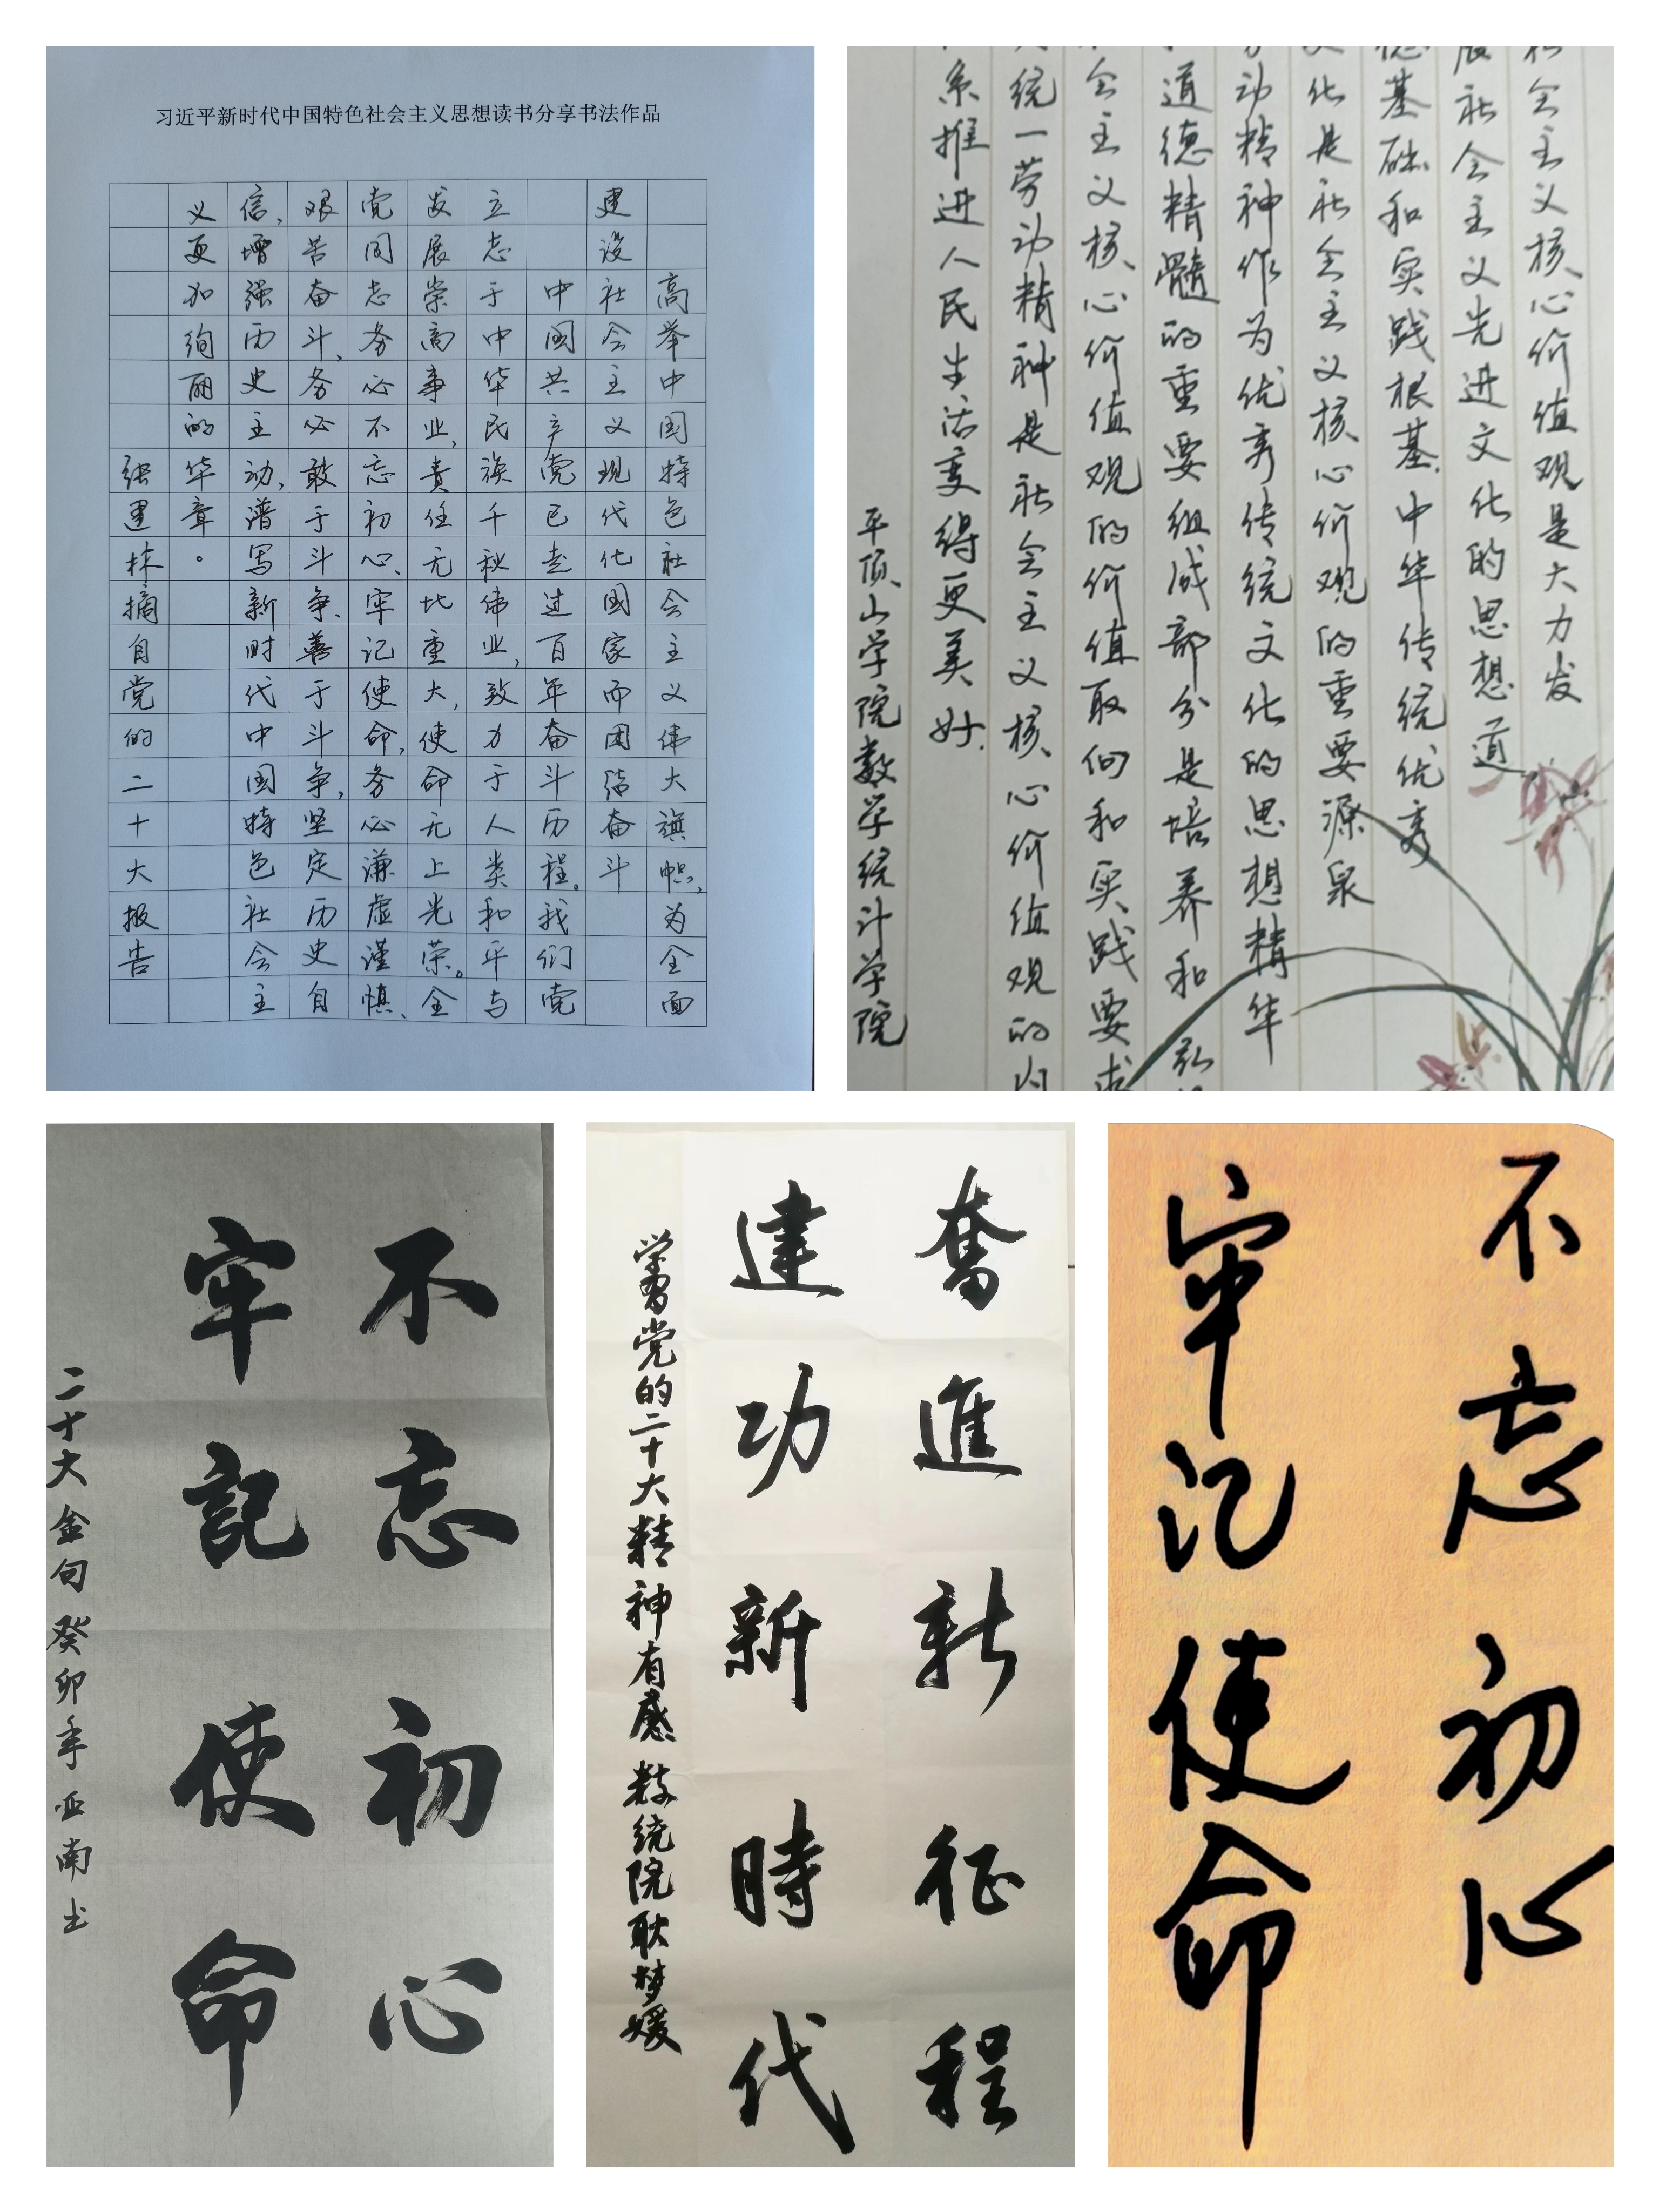 习近平新时代中国特色社会主义思想读书分享书法作品
高举中国特色社会主义伟大旗帜,为全面
建设社会主义现代化国家而团结奋斗
中国共产党已走过百年奋斗历程。我们党
立志于中华民族千秋伟业,致力于人类和平与
发展崇高事业,责任无比重大,使命无上光荣。全
党同志务必不忘初心、牢记使命,务必谦虚谨慎、
艰苦奋斗,务必敢于斗争、善于斗争,坚定历史自
信,增强历史主动,谱写新时代中国特色社会主
义更加绚丽的华章。
张建林摘自党的二十大报告
社会主义核心价值观是大力发
展社会主义先进文化的思想道
德基础和实践根基.中华传统优秀
文化是社会主义核心价值观的重要源泉
动精神作为优秀传统文化的思想精华
道德精髓的重要组成部分是培养和弘
会主义核心价值观的价值取向和实践要求
统一劳动精神是社会主义核心价值观的内
系推进人民生活变得更美好.
平顶山学院数学统计学院
不忘初心
牢記使命
二十大金句癸卯年亚南书
奮進新征程
建功新時代
学習党的二十大精神有感 数统院耿梦媛
不忘初心
牢记使命